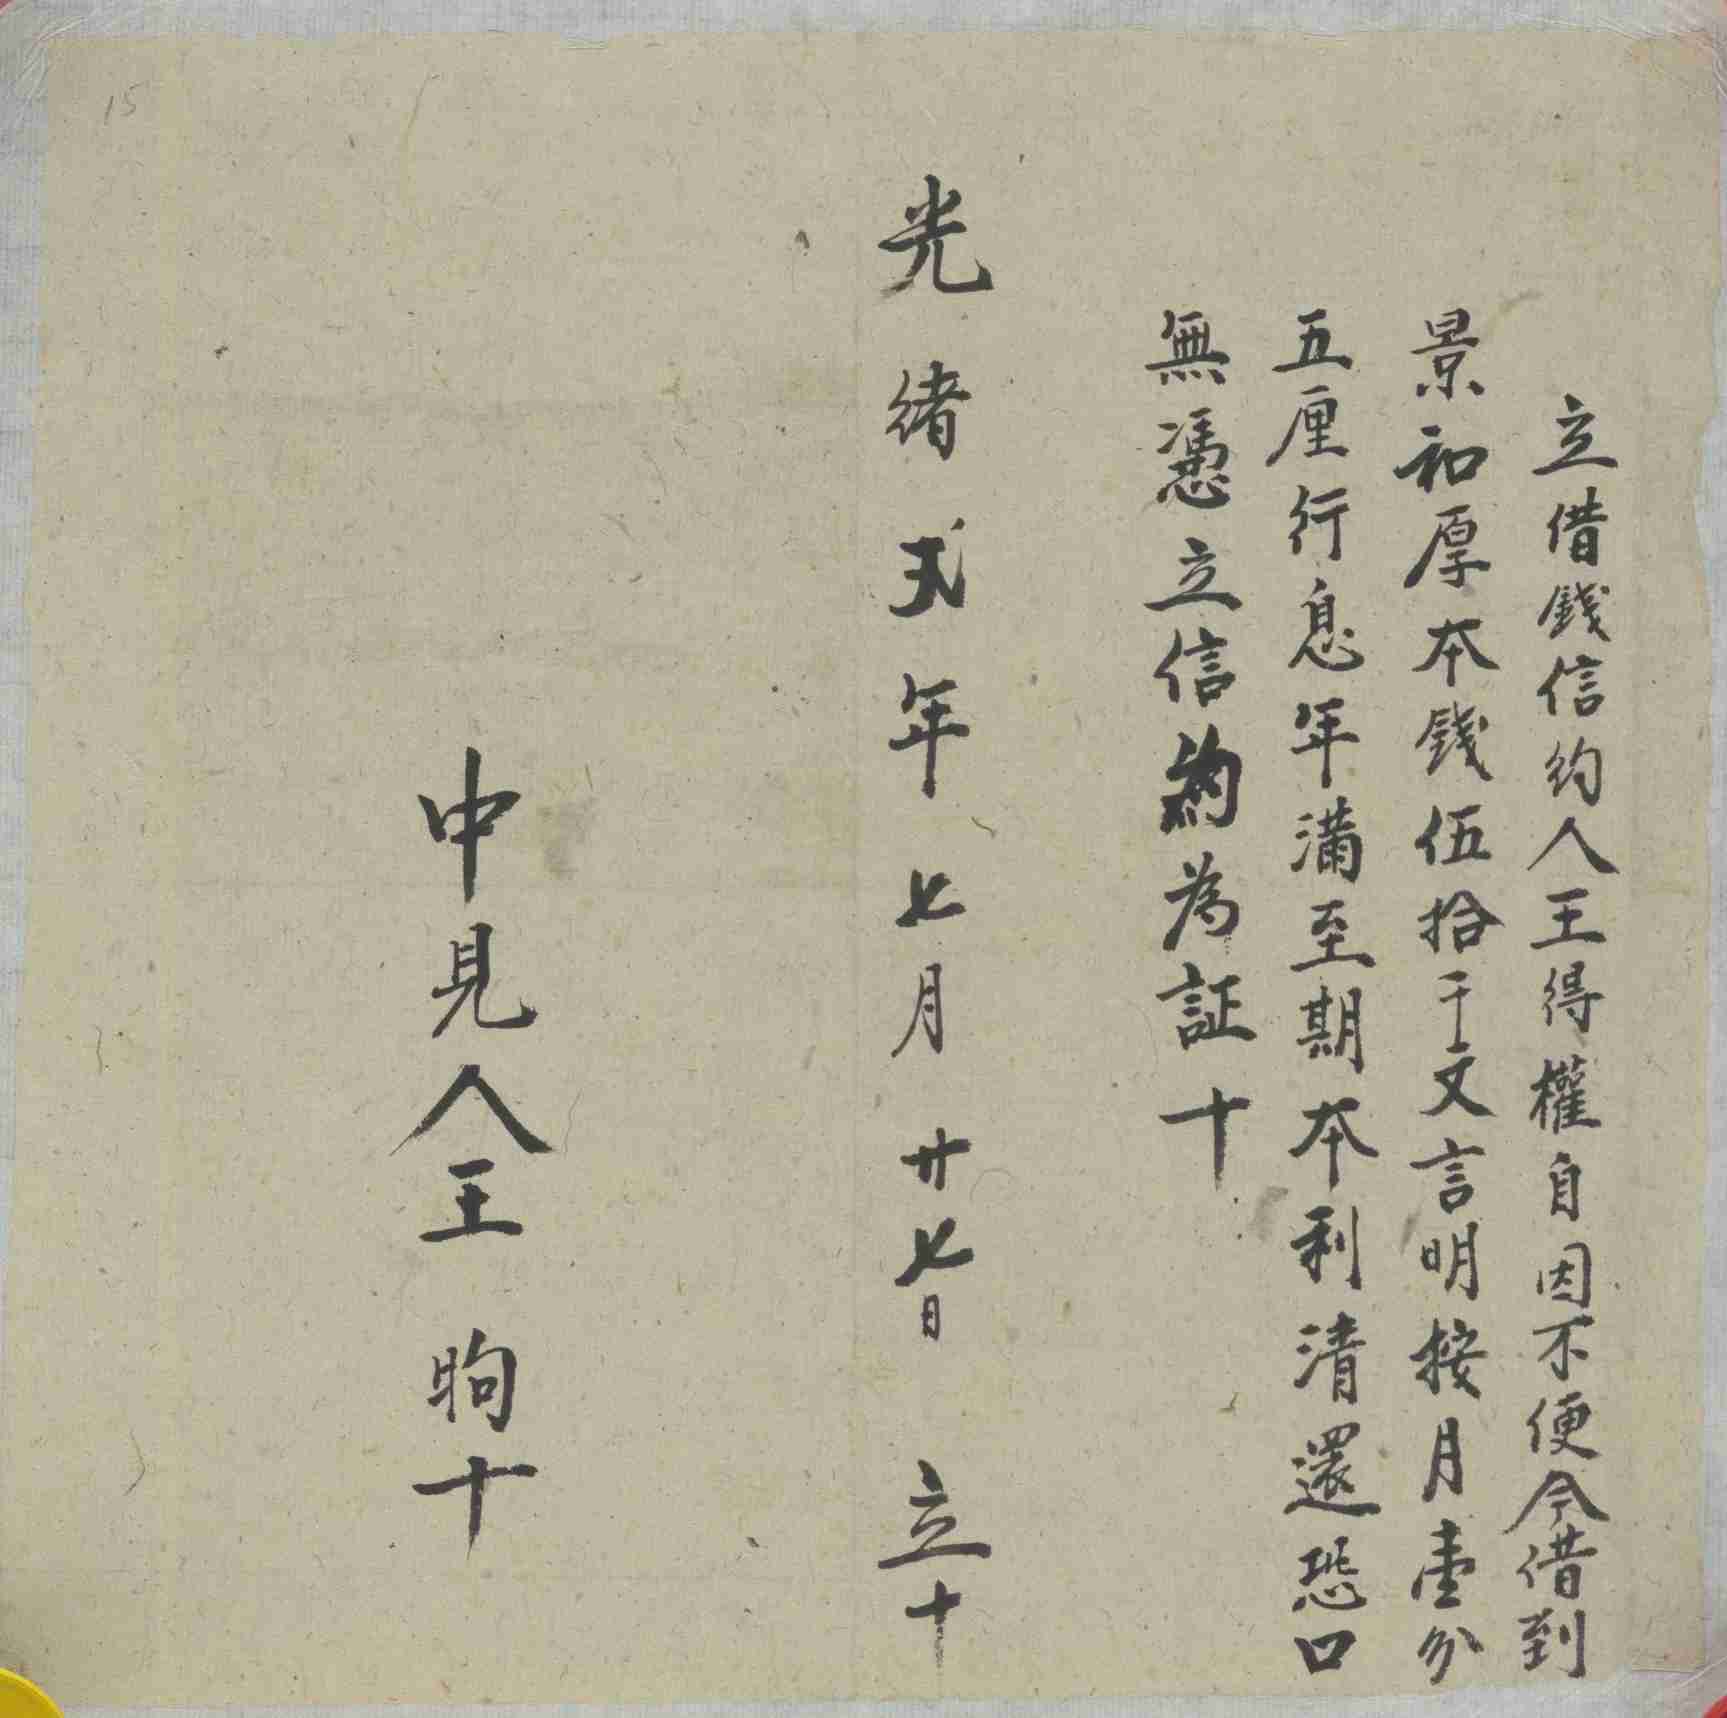 立借錢信約人王得權自因不便今借到
景和厚本錢伍拾千文言明按月壹分
五厘行息年滿至期本利清還恐口
無憑立信約為証十
光緒弍年七月廿七日 立十
中見人王 晌十
15